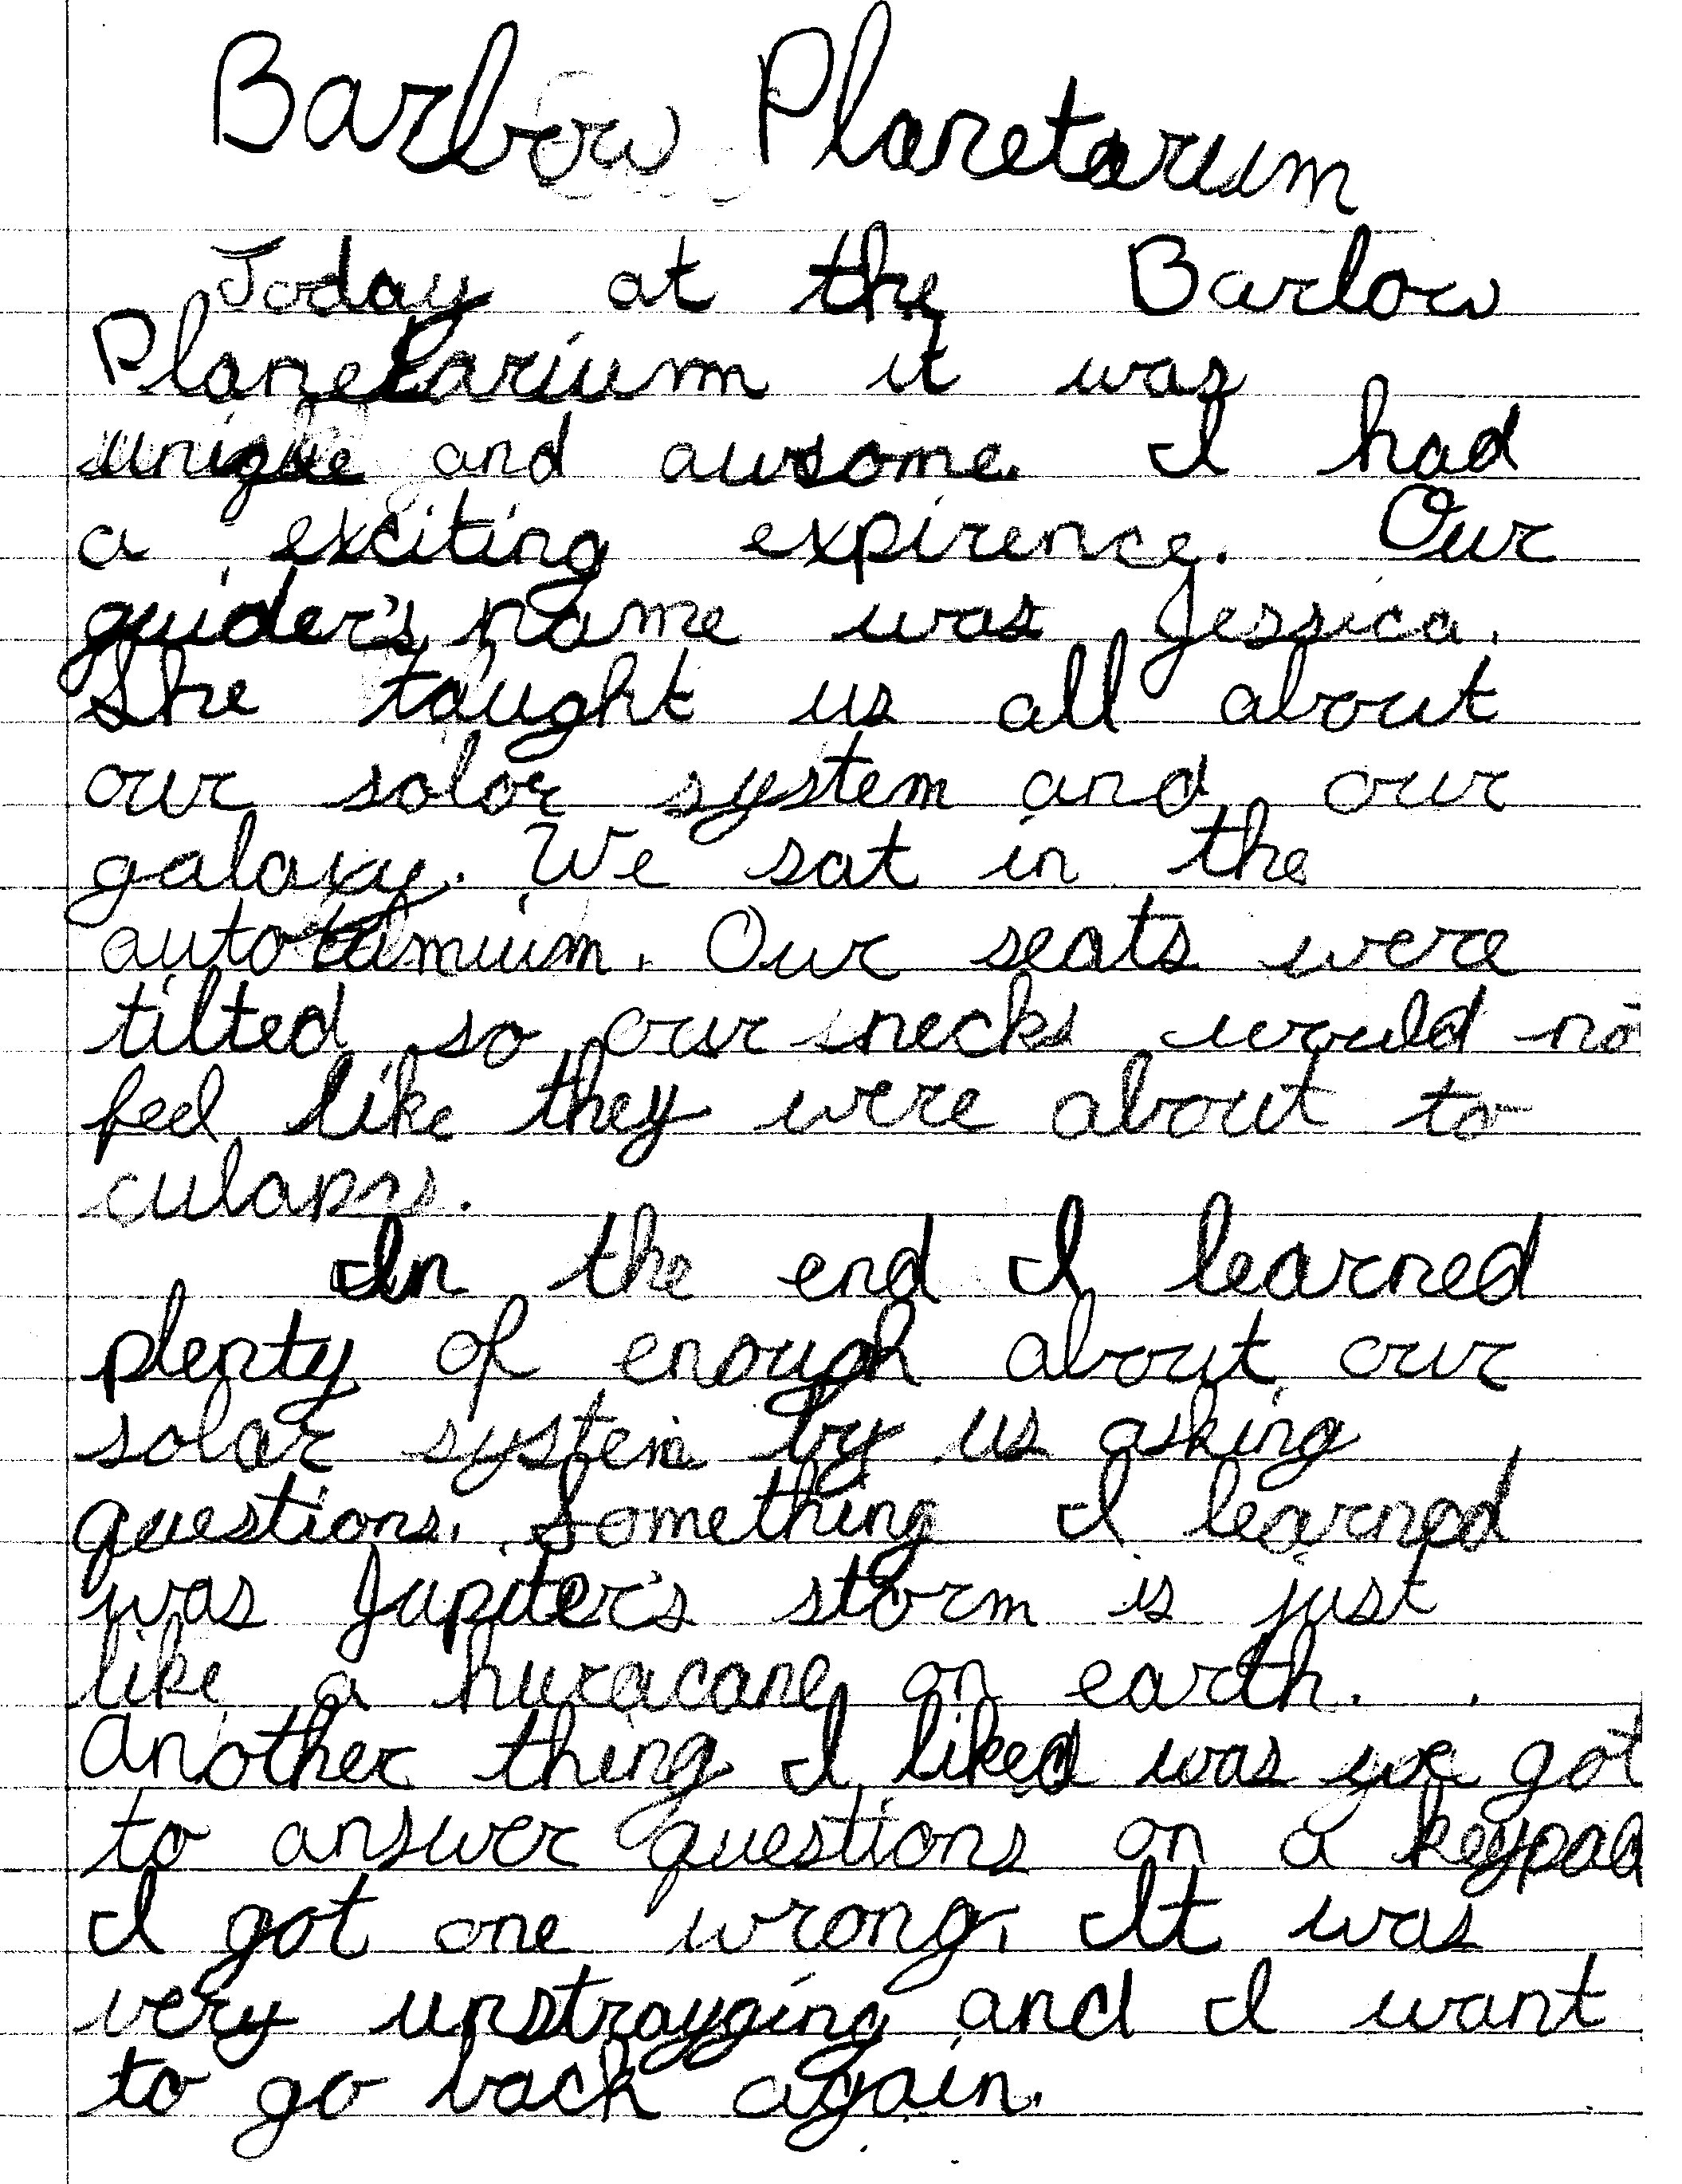 Barlow Planetarium
Today at the Barlow
Planetarium it was
unique and awsome. I had
a exciting expirence. Our
guider's name was Jessica.
She taught us all about
our solor system and our
galaxy. We sat in the
autotamium. Our seats were
tilted so our necks would no
feel like they were about to
culapss.
In the end I learned
plenty of enough about our
solar system by us asking
questions. Something I learned
was Jupiter's storm is just
like a huracane on earth.
Another thing I liked was we got
to answer questions on a keypad
I got one wrong. It was
very unstrayging and I want
to go back again.